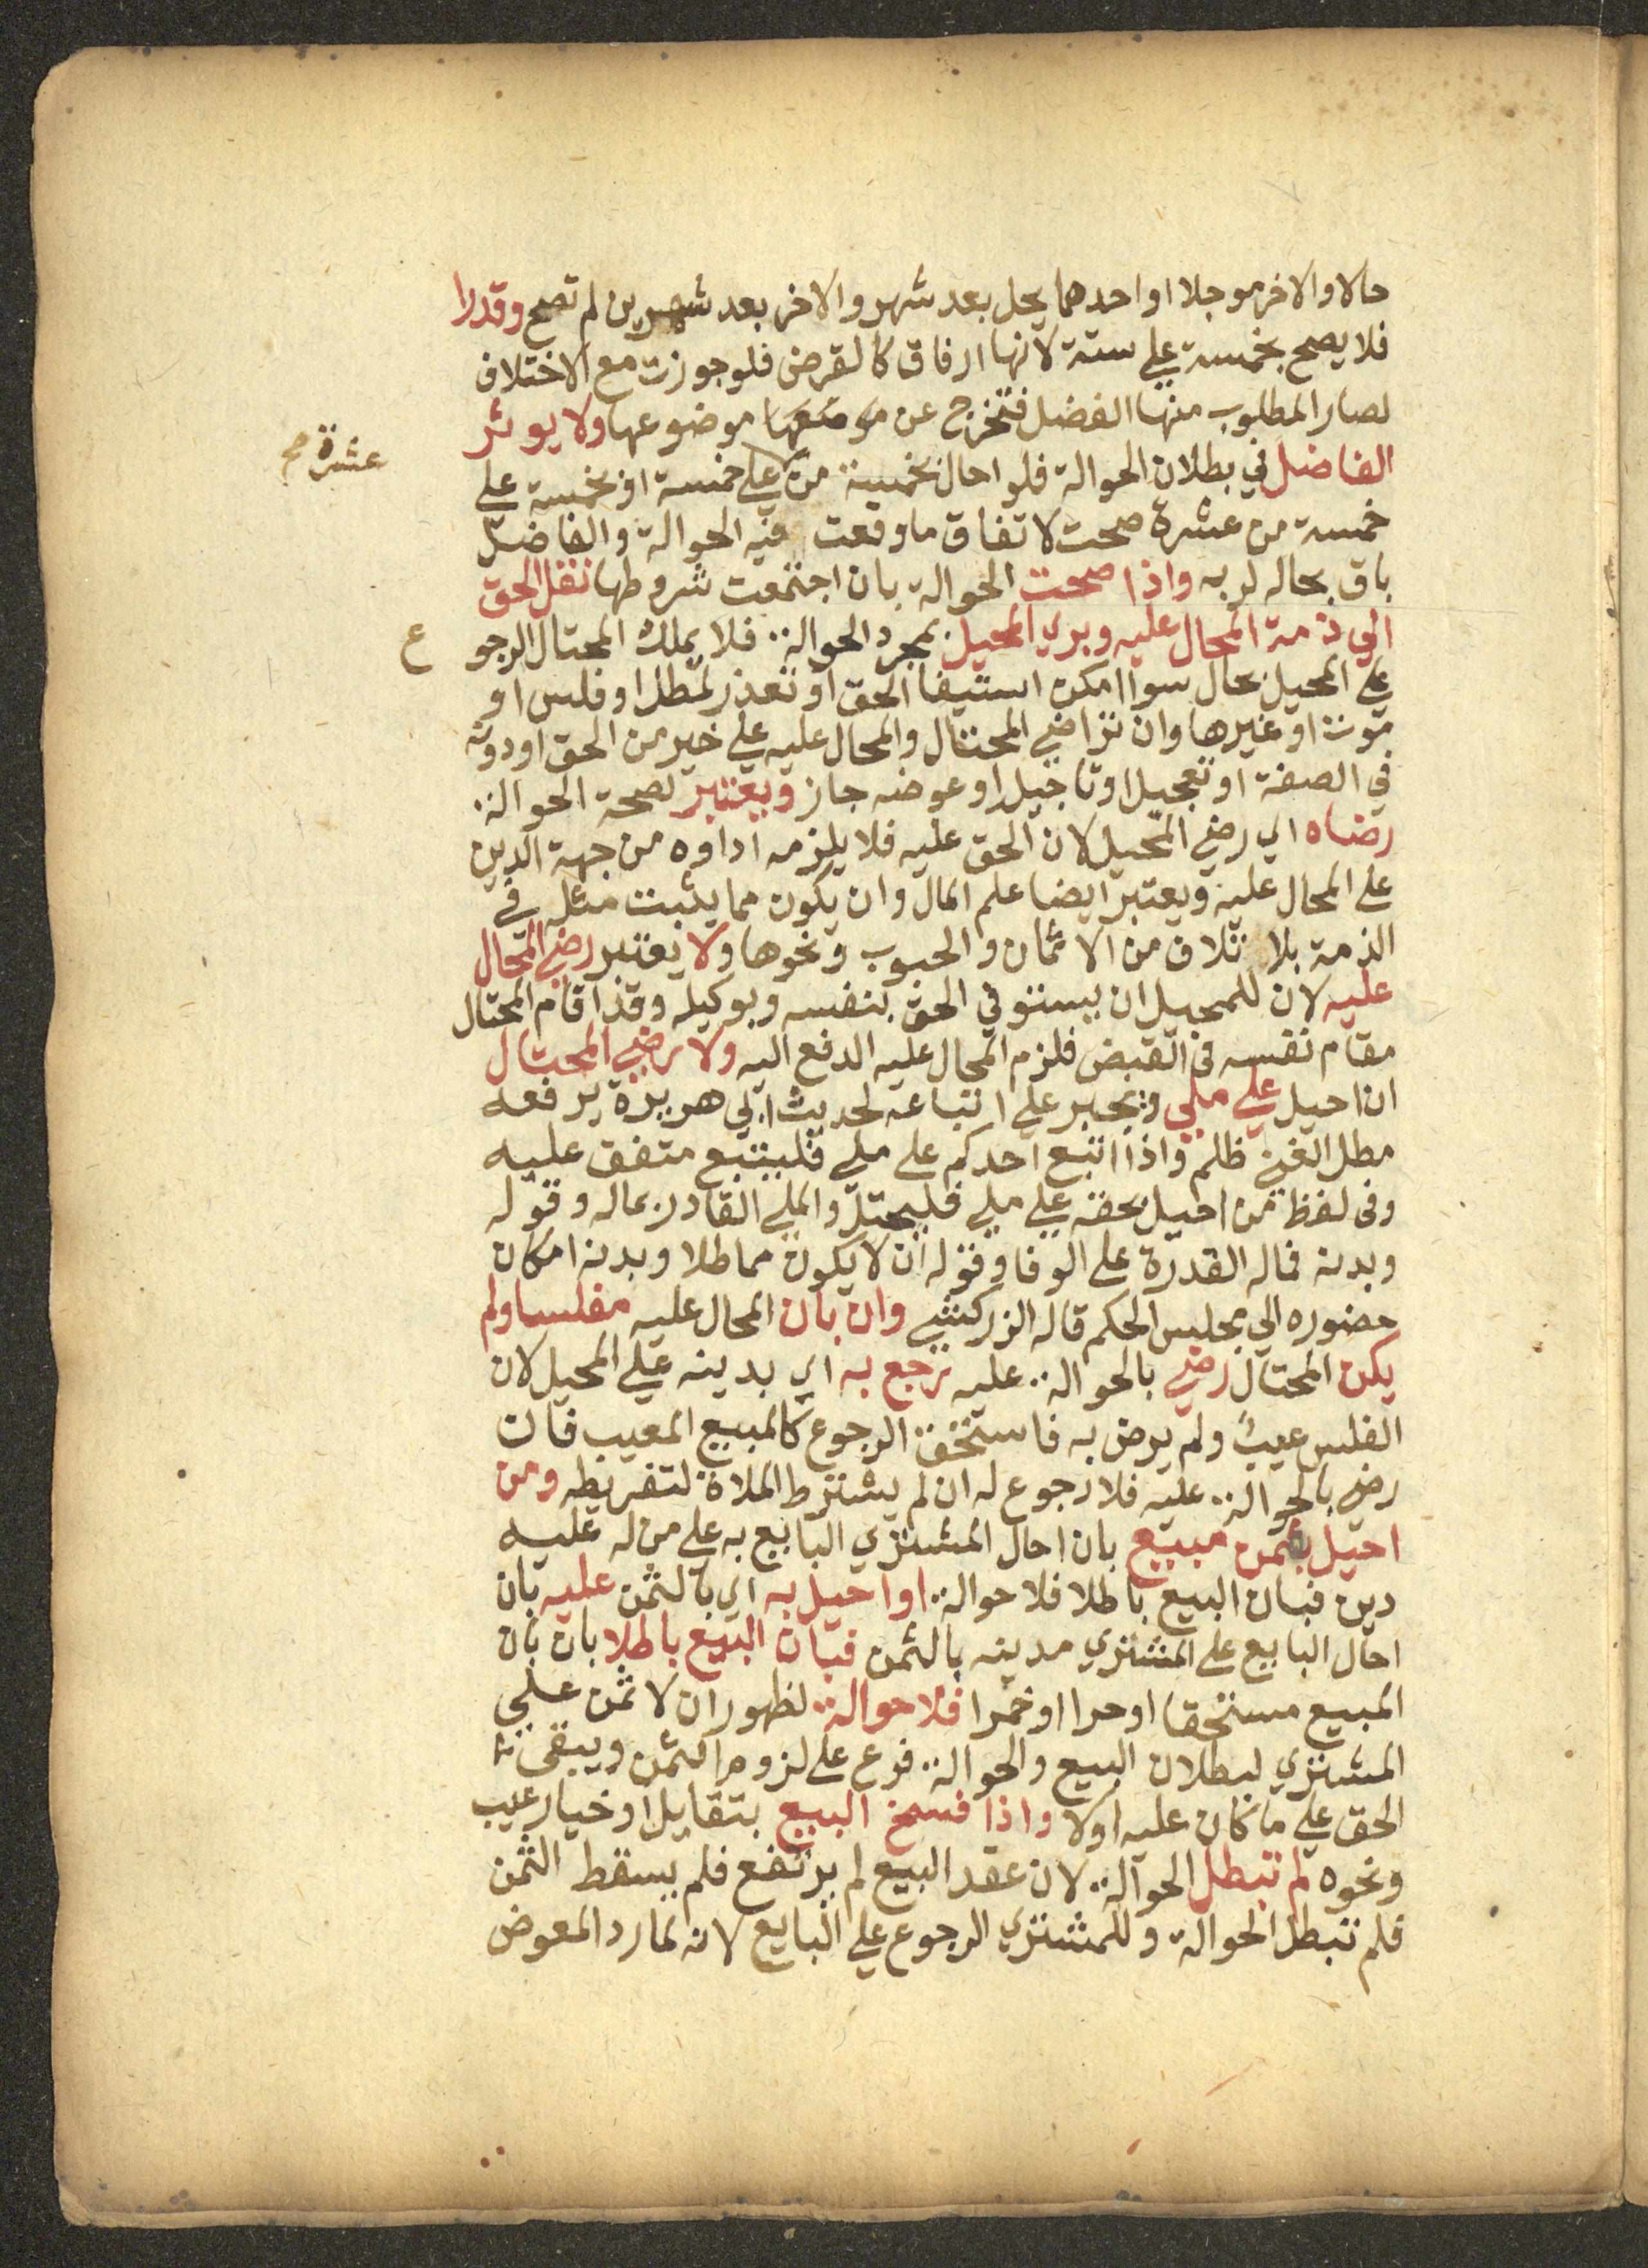 حالا والاخر موجلا او احدهما يحل بعد شهر والاخر بعد شهرين لم تصح وقدرا
فلا يصح بخمسة علي ستة لانها ارفاق كالقرض فلو جوزت مع الاختلاف
لصار المطلوب منها الفضل فتخرج عن موضعها موضوعها ولا يوثر
الفاضل في بطلان الحوالة فلو احال بخمسة من علي خمسة او بخمسة علي
عشرة صح
خمسة من عشرة صحت لاتفاق ما وقعت فيه الحوالة والفاضل
باق بحاله لربه واذا صحت الحوالة بان اجتمعت شروطها نقل الحق
الي ذمة المحال عليه وبري المحيل بمجرد الحوالة فلا يملك المحتال الرجو
ع
علي المحيل بحال سوا امكن استيفا الحق او تعذر لمطل او فلس او
موت او غيرها وان تراضي المحتال والمحال عليه علي خير من الحق او دونه
في الصفة او تعجيل او تاجيل او عوضه جاز ويعتبر لصحة الحوالة
رضاه اي رضي المحيل لان الحق عليه فلا يلزمه اداوه من جهة الدين
علي المحال عليه ويعتبر ايضا علم المال وان يكون مما يثبت مثله في
الذمة بلا تلاف من الاثمان والحبوب ونحوها ولا يعتبر رضي المحال
عليه لان للمحيل ان يستوفي الحق بنفسه وبوكيله وقد اقام المحتال
مقام نفسه في القبض فلزم المحال عليه الدفع اليه ولا رضي المحتال
ان احيل علي ملي ويجبر علي اتباعه لحديث ابي هريرة يرفعه
مطل الغني ظلم واذا اتبع احدكم علي ملي فليتبع متفق عليه
وفي لفظ من احيل بحقه علي ملي فليحتل والملي القادر بماله وقوله
وبدنه فماله القدرة علي الوفا وقوله ان لا يكون مماطلا وبدنه امكان
حضوره الي مجلس الحكم قاله الزركشي وان بان المحال عليه مفلسا ولم
يكن المحتال رضي بالحوالة عليه رجع به اي بدينه علي المحيل لان
الفلس عيب ولم يرض به فاستحق الرجوع كالمبيع المعيب فان
رضي بالحوالة عليه فلا رجوع له ان لم يشترط الملاة لتفريطه ومن
احيل بثمن مبيع بان احال المشتري البايع به علي من له عليه
دين فبان البيع باطلا فلا حوالة او احيل به اي بالثمن عليه بان
احال البايع علي المشتري مدينه بالثمن فبان البيع باطلا بان بان
المبيع مستحقا او حرا او خمرا فلا حوالة لظهور ان لا ثمن علي
المشتري لبطلان البيع والحوالة فرع علي لزوم الثمن ويبقي
الحق علي ما كان عليه اولا واذا فسخ البيع بتقايل او خيار عيب
ونحوه لم تبطل الحوالة لان عقد البيع لم يرتفع فلم يسقط الثمن
فلم تبطل الحوالة وللمشتري الرجوع علي البايع لانه لما رد المعوض